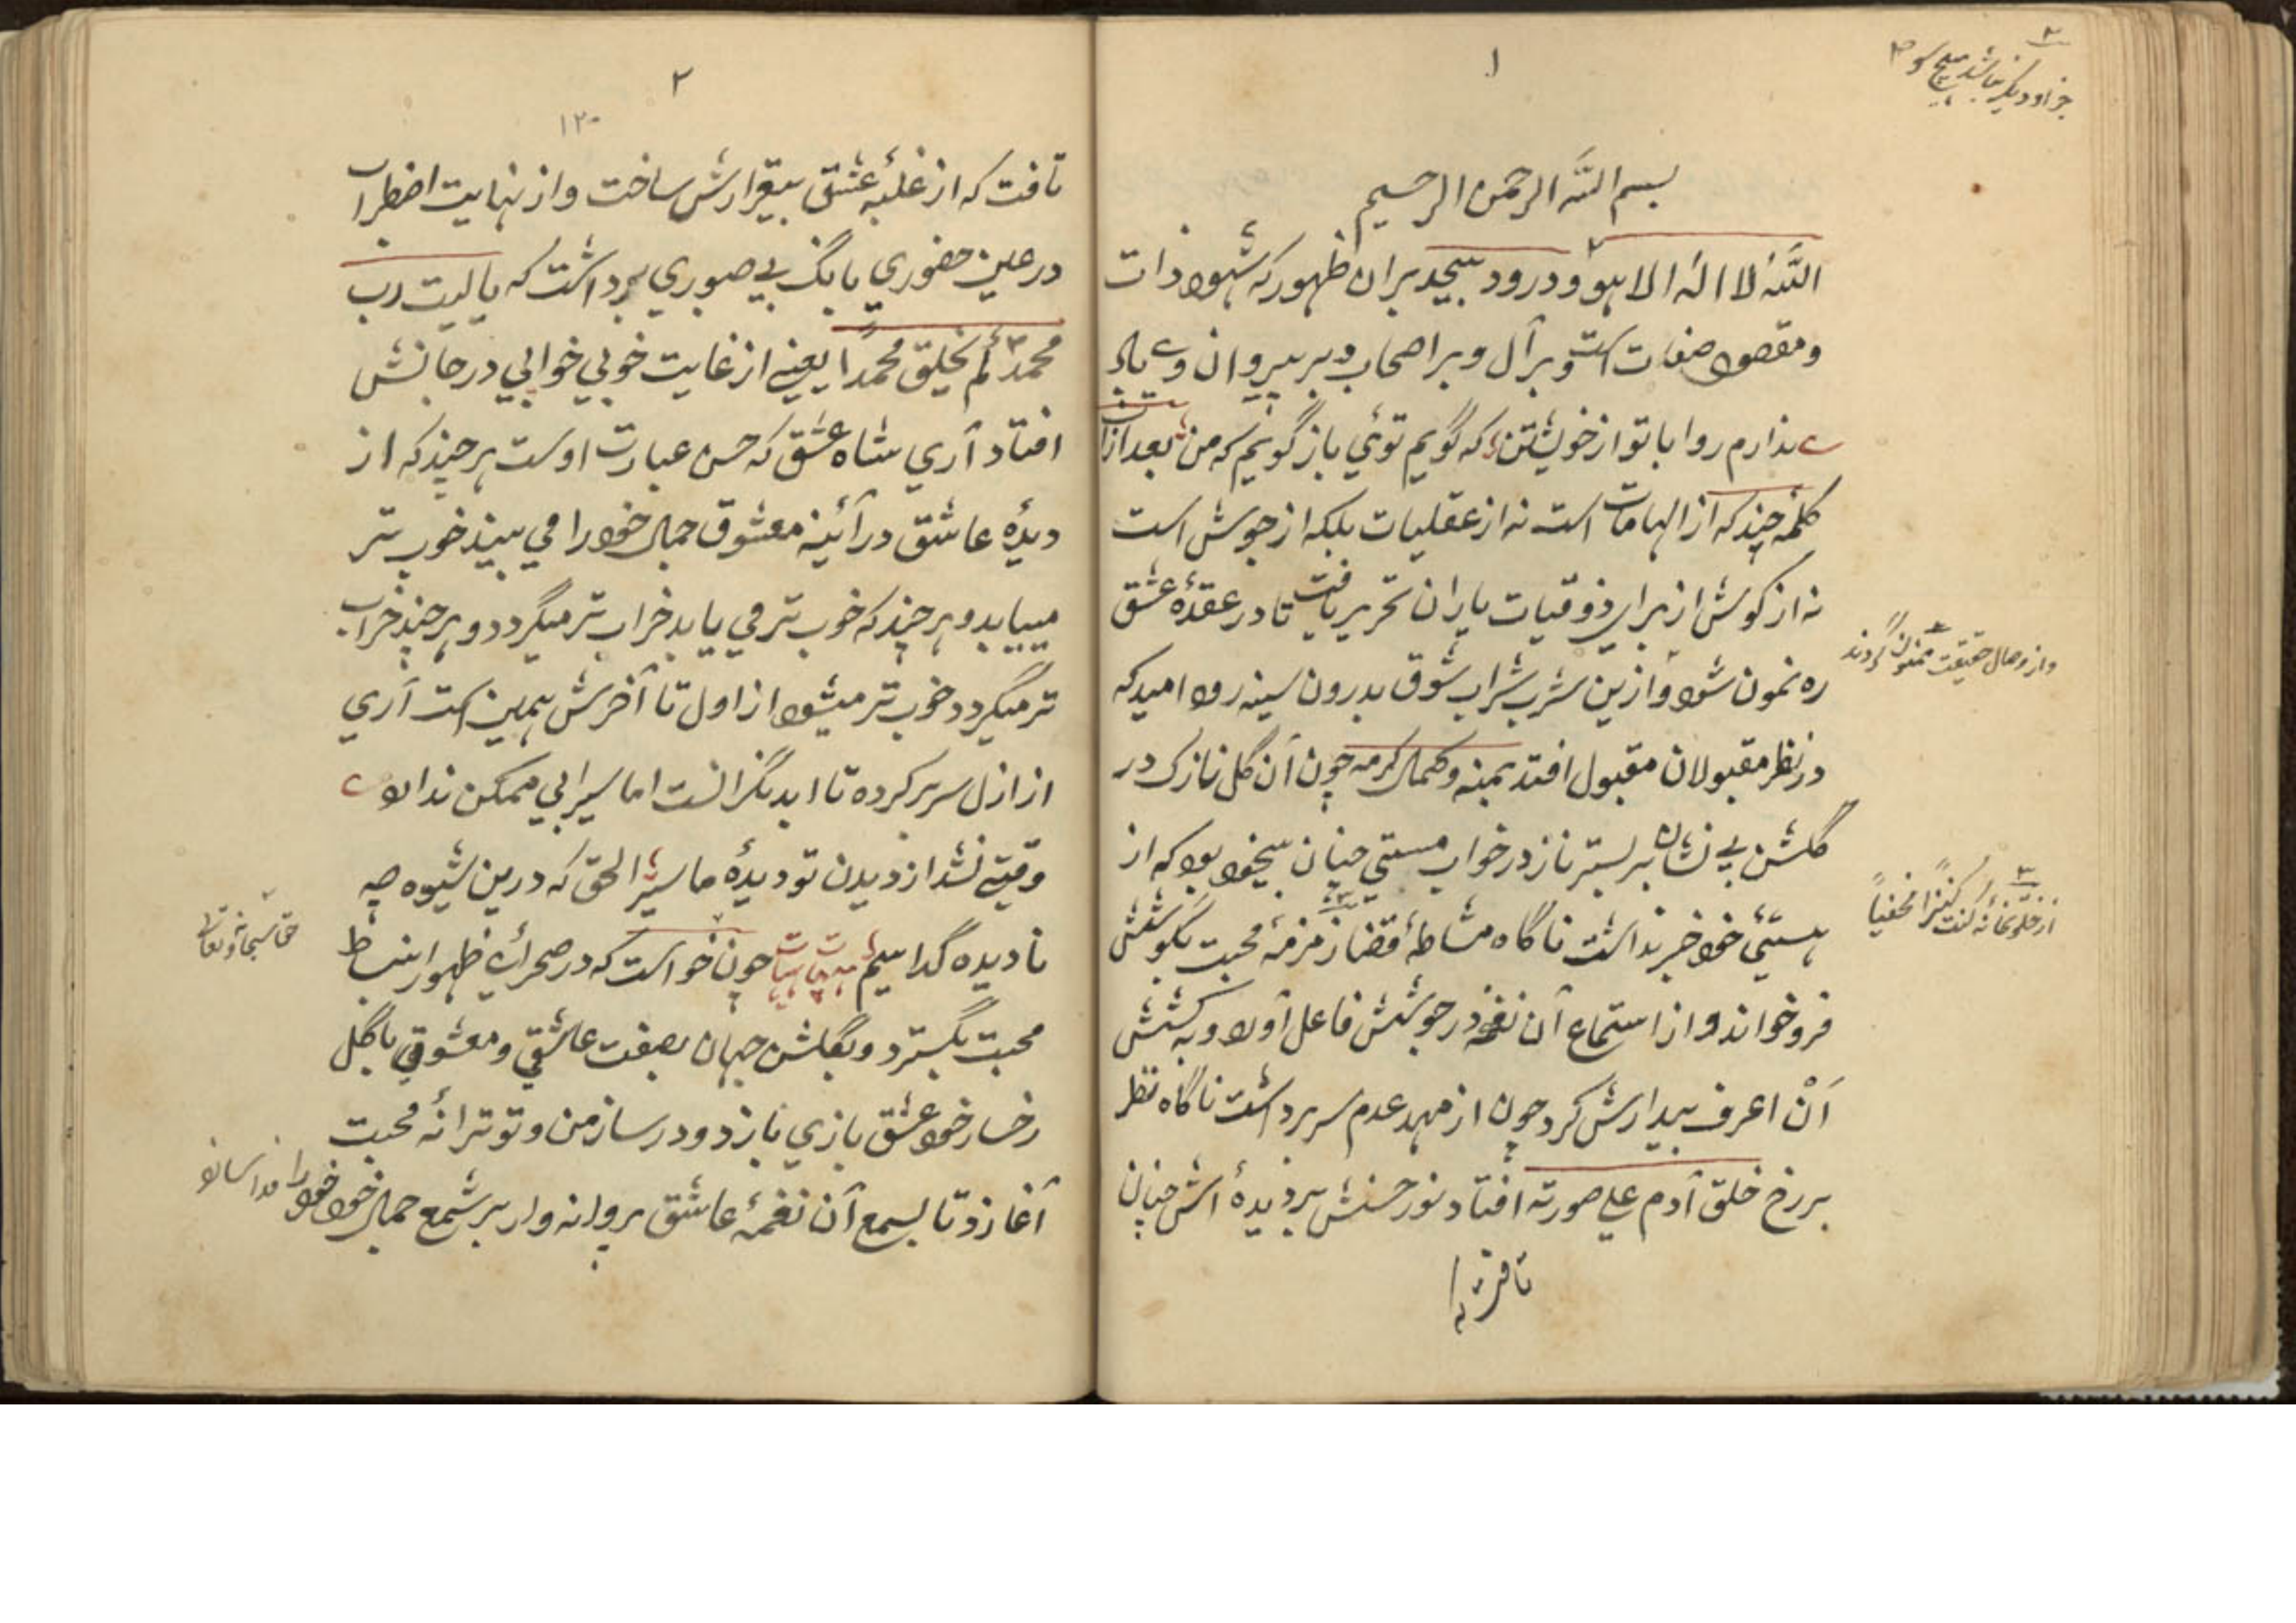 ۱
بسم الله الرحمن الرحیم
الله لا اله الا هو و درود بیحد بران ظهور که شهود ذات
و مقصود صفات است و بر آل و بر اصحاب و بر پیروان وی باد
ندارم روا با تو از خویشتن که گویم توئی باز گویم که من بعد ازان
کلمه چند که از الهامات است نه از عقلیات بلکه از جوش است
نه از کوشش از برای ذوقیات یاران تحریر یافت تا در عقدهٔ عشق
ره نمون شود و ازین شرب شراب شوق بدرون سینه رود امید که
در نظر مقبولان مقبول افتد بمنه و کمال کرمه چون آن گل نازک در
گلشن بی نشان بر بستر ناز در خواب مستی چنان بیخود بود که از
هستیٔ خود خبر نداشت ناگاه مشاطهٔ قضا زمزمهٔ محبت بگوشش
فرو خواند و از استماع آن نغمه در جوشش فاعل آورد و به کشش
اَنْ اعرف بیدارش کرد چون از مهد عدم سر برداشت ناگاه نظر
بر رخ خلق آدم علی صورته افتاد نور حسنش بر دیدهٔ اش چنان
جز او دیگر نباشد هیچ موجود
و از وصال حقیقت ممنون گردند
از خلوتخانه کنت کنزا مخفیاً
۲
۱۲۰
تافت که از غلبهٔ عشق بیقرارش ساخت و از نهایت اضطراب
در عین حضوری بانگ بی صبوری برداشت که یا لیت رب
محمد لم یخلق محمداً یعنی از غایت خوبی خوابی در جانش
افتاد آری شاه عشق که حسن عبارت اوست هر چند که از
دیدهٔ عاشق در آئینه معشوق جمال خود را می بیند خوب تر
مییابد و هر چند که خوب تر می یابد خراب تر میگردد و هر چند خراب
تر میگردد خوب تر میشود از اول تا آخرش همین است آری
از ازل سر بر کرده تا ابد نگرانست اما سیرابی ممکن ندارد
وقتی نشد از دیدن تو دیدهٔ ما سیر الحق که درین شیوه چه
نادیده گدا ییم هیهات هیهات چون خواست که در صحرای ظهور انبساط
محبت بگسترد و بگلشن جهان بصفت عاشقی و معشوقی با گل
رخسار خود عشق بازی بازد و در ساز من و تو ترانهٔ محبت
آغازد تا بسمع آن نغمهٔ عاشق پروانه وار بر شمع جمال خود خود را فدا سازد
حق سبحانه و تعالی